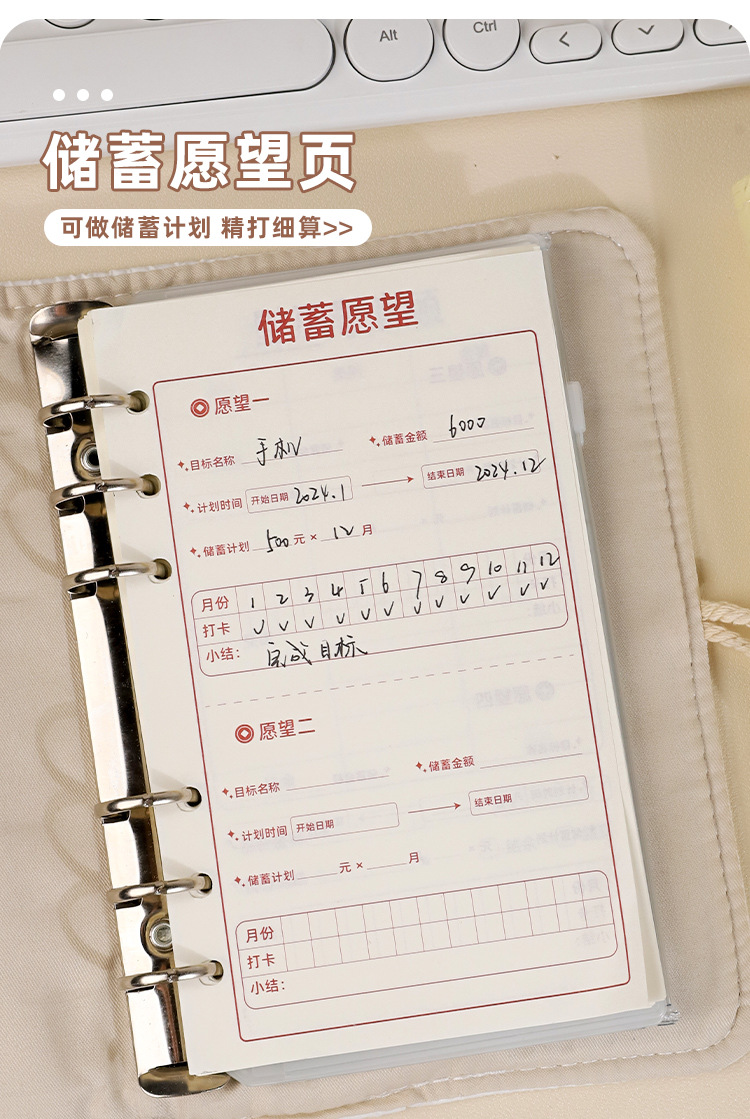 Alt
Ctrl
储蓄愿望页
可做储蓄计划 精打细算>>
储蓄愿望
愿望一
目标名称 手机 储蓄金额 6000
计划时间 开始日期 2024.1 结束日期 2024.12
储蓄计划 500 元 × 12 月
月份 1 2 3 4 5 6 7 8 9 10 11 12
打卡 ✓ ✓ ✓ ✓ ✓ ✓ ✓ ✓ ✓ ✓ ✓ ✓
小结： 完成目标
愿望二
目标名称 储蓄金额
计划时间 开始日期 结束日期
储蓄计划 元 × 月
月份
打卡
小结：